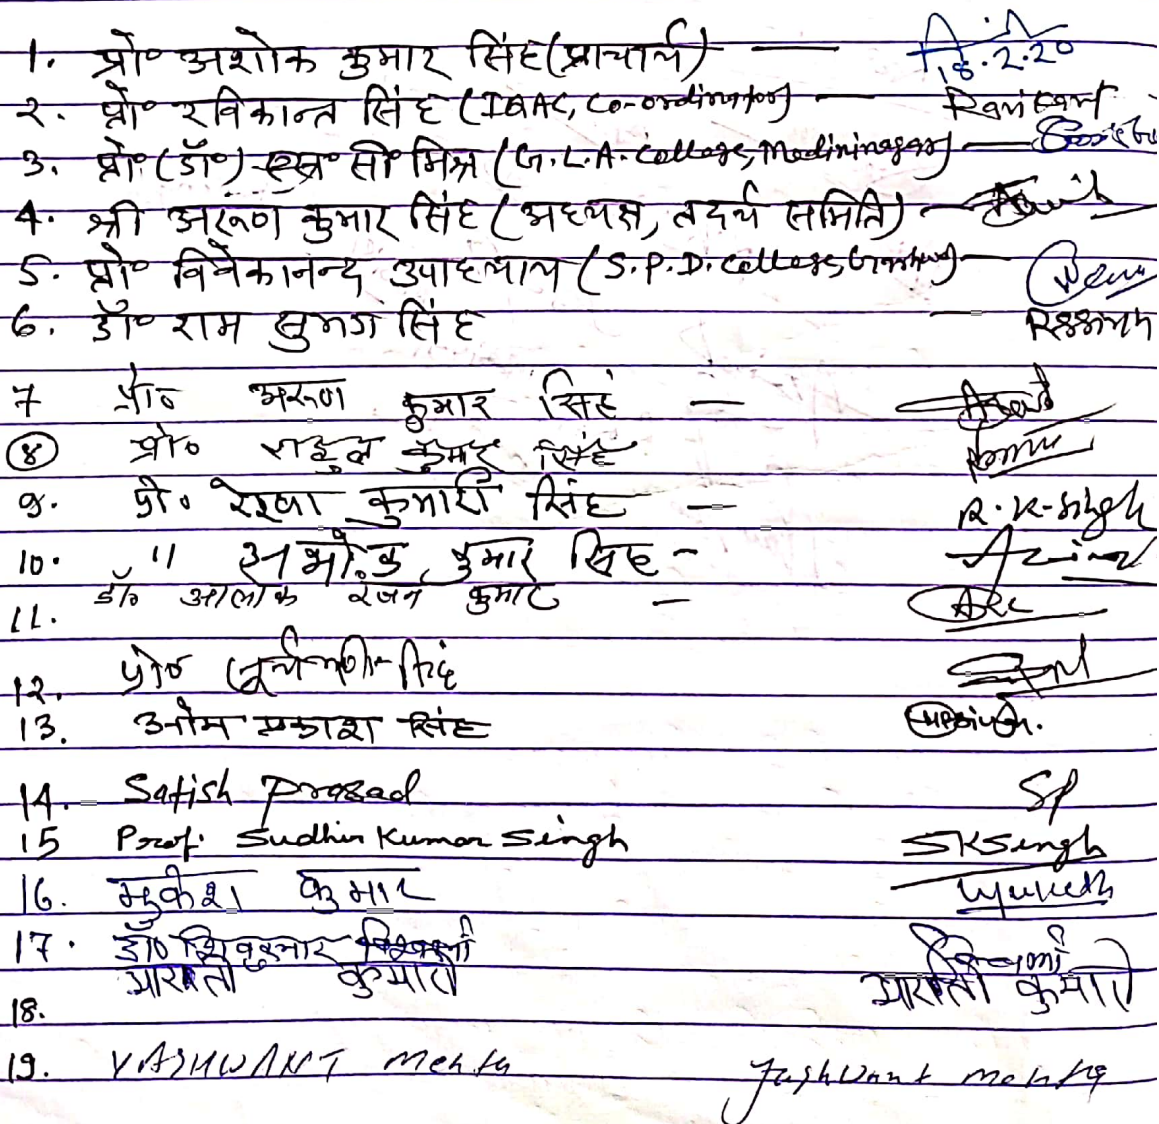 1. प्रो० अशोक कुमार सिंह (प्राचार्य) — 18.2.20
२. प्रो० रविकान्त सिंह (IQAC, Co-ordinator) — Ravikant
3. प्रो० (डॉ०) एस० सी० मिश्र (G.L.A. College, Medininagar) —
4. श्री अरूण कुमार सिंह (अध्यक्ष, तदर्थ समिति) —
5. प्रो० विवेकानन्द उपाध्याय (S.P.D. College, Garhwa) —
6. डॉ० राम सुभग सिंह —
7 प्रो० अरूण कुमार सिंह —
8 प्रो० राहुल कुमार सिंह
9. प्रो० रेखा कुमारी सिंह — R.K. Singh
10. " कुमार सिंह -
11. डॉ० आलोक रंजन कुमार — ARK
12. प्रो० सिंह
13. ओम प्रकाश सिंह
14. Satish Prasad SP
15 Prof. Sudhir Kumar Singh SKSingh
16. मुकेश कुमार Mukesh
17. डॉ० शिवकुमार विश्वकर्मा
18. आरती कुमारी आरती कुमारी
19. YASHWANT Mehta Yashwant Mehta